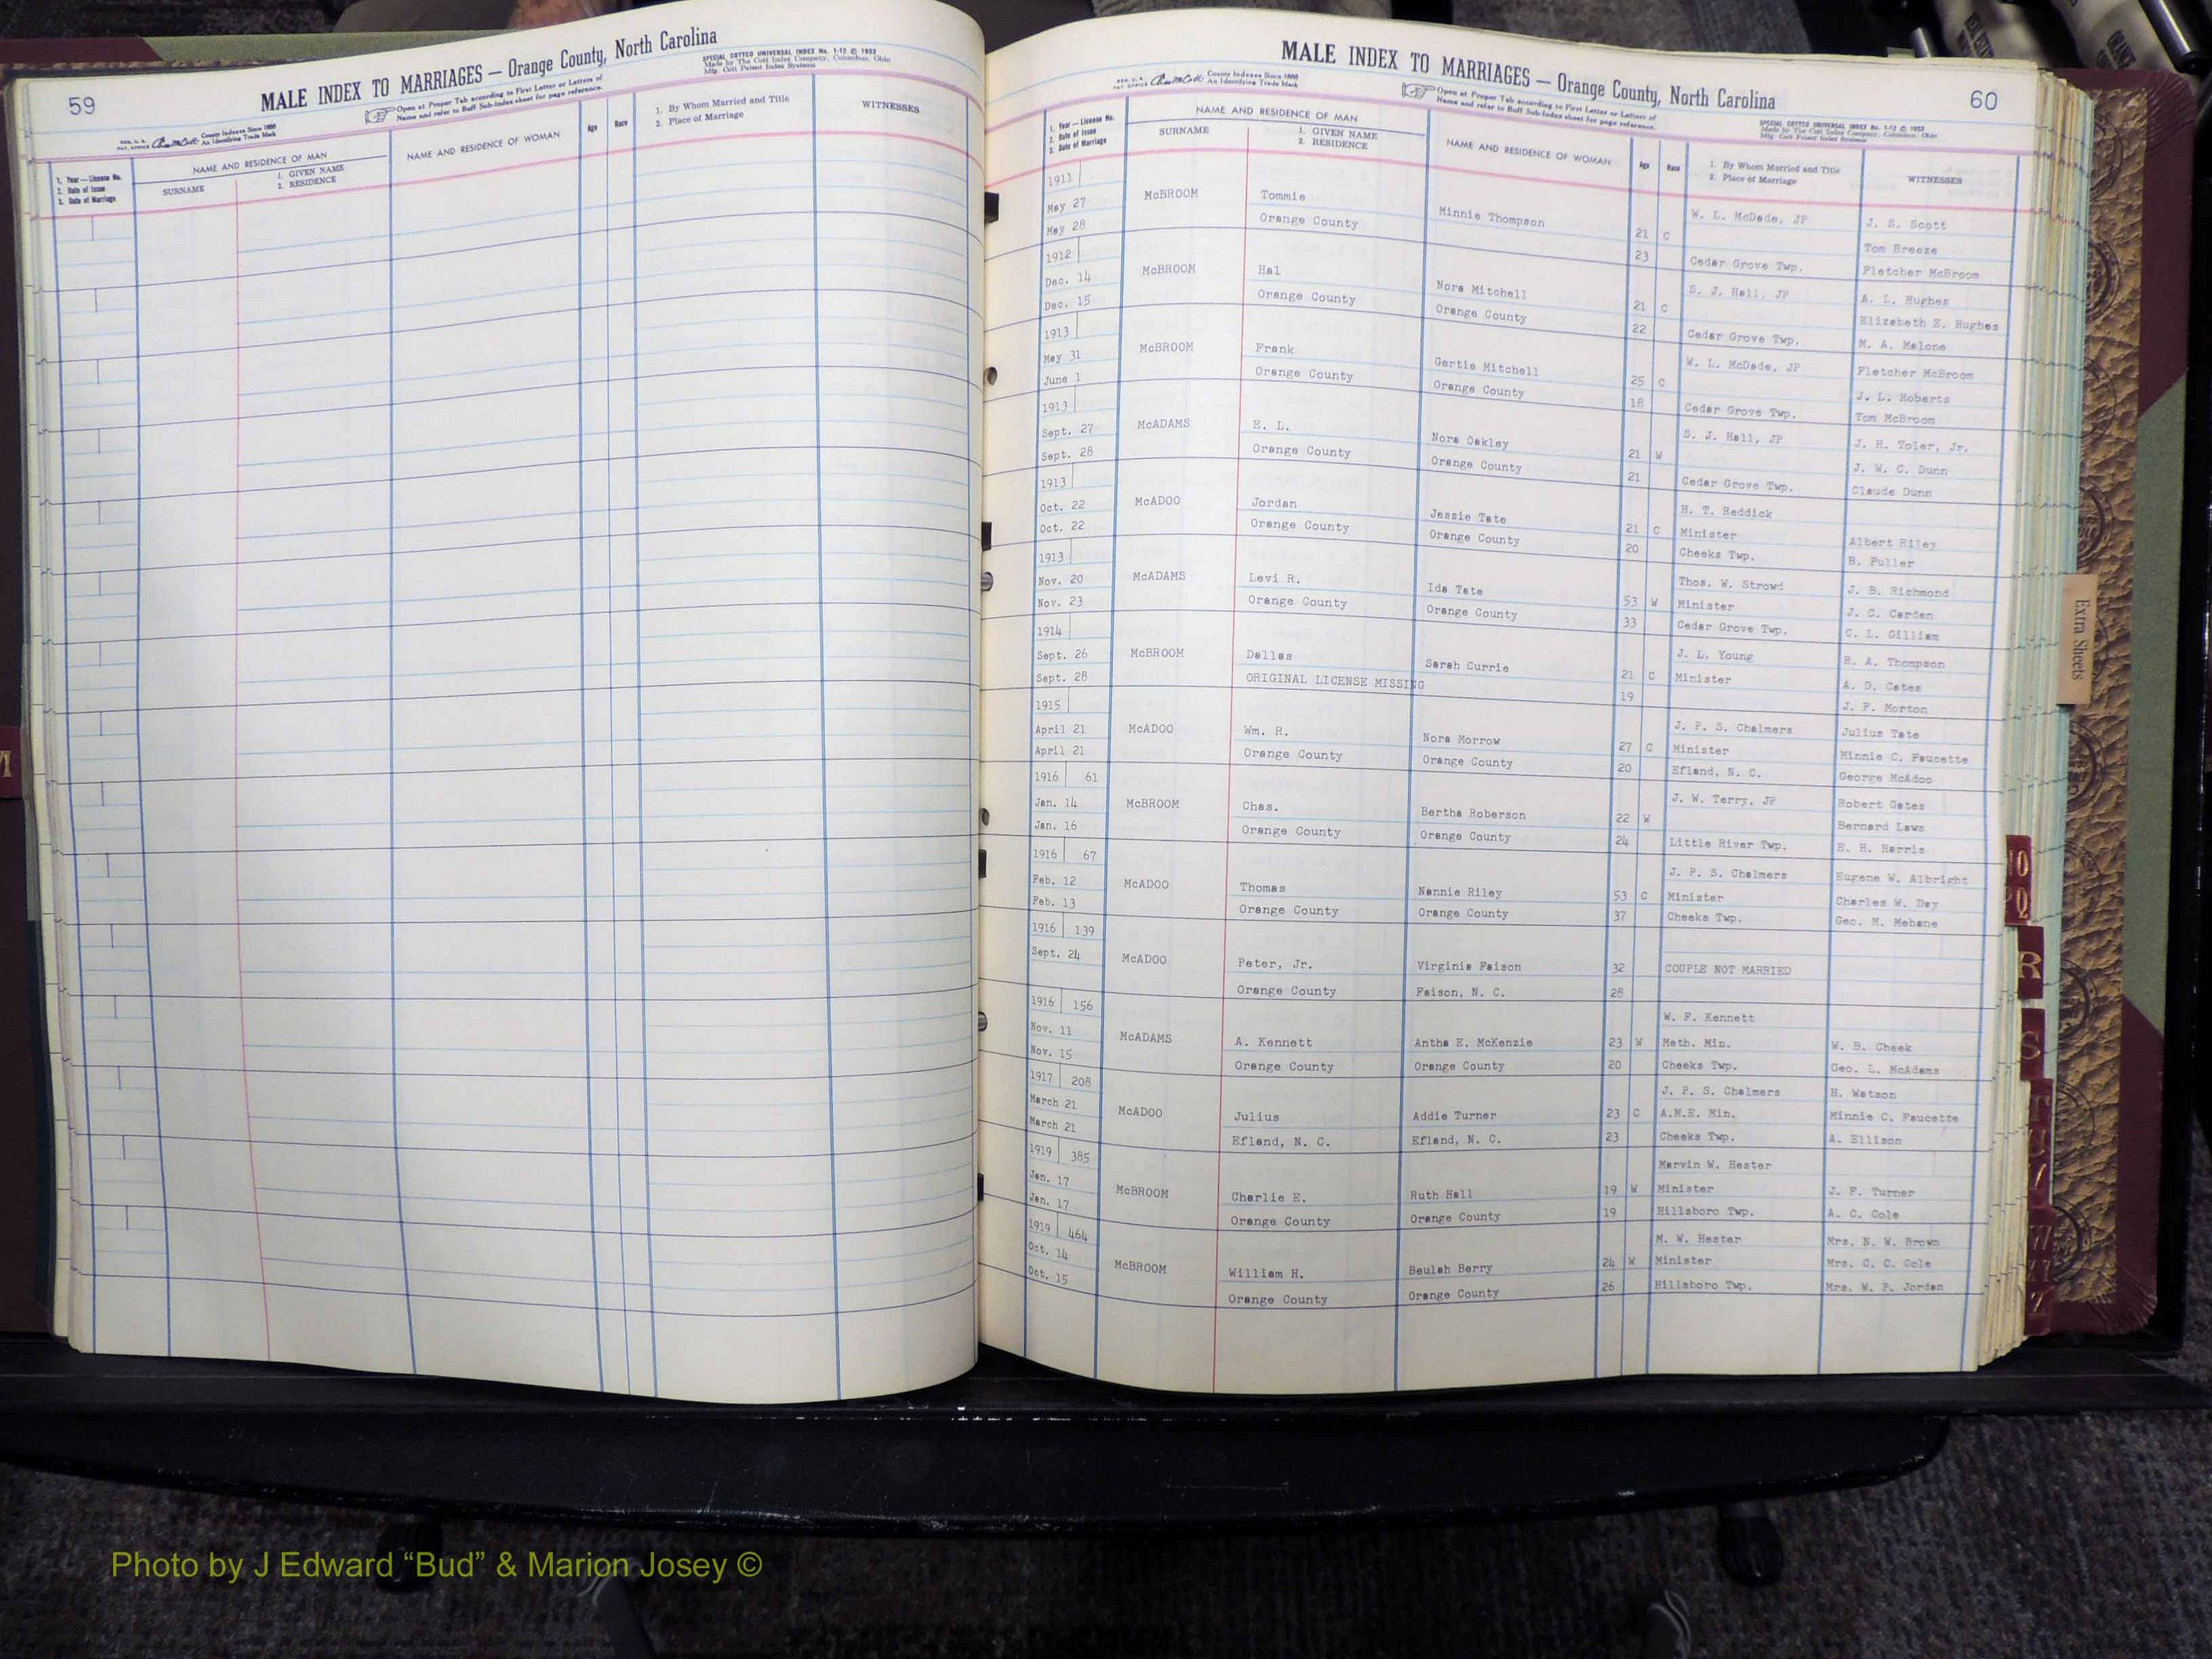 59
MALE INDEX TO MARRIAGES — Orange County, North Carolina
SPECIAL COTTCO UNIVERSAL INDEX No. 1-12 © 1952
Made by The Cott Index Company, Columbus, Ohio
Mfg. Cott Patent Index Systems
Open at Proper Tab according to First Letter or Letters of
Name and refer to Buff Sub-Index sheet for page reference.
County Indexes Since 1888
An Identifying Trade Mark
1. Year — License No.
2. Date of Issue
3. Date of Marriage
NAME AND RESIDENCE OF MAN
SURNAME
1. GIVEN NAME
2. RESIDENCE
NAME AND RESIDENCE OF WOMAN
Age
Race
1. By Whom Married and Title
2. Place of Marriage
WITNESSES
MALE INDEX TO MARRIAGES — Orange County, North Carolina
60
County Indexes Since 1888
An Identifying Trade Mark
Open at Proper Tab according to First Letter or Letters of
Name and refer to Buff Sub-Index sheet for page reference.
SPECIAL COTTCO UNIVERSAL INDEX No. 1-12 © 1952
Made by The Cott Index Company, Columbus, Ohio
Mfg. Cott Patent Index Systems
1. Year — License No.
2. Date of Issue
3. Date of Marriage
NAME AND RESIDENCE OF MAN
SURNAME
1. GIVEN NAME
2. RESIDENCE
NAME AND RESIDENCE OF WOMAN
Age
Race
1. By Whom Married and Title
2. Place of Marriage
WITNESSES
1911 W. L. McDade, JP J. S. Scott
May 27 McBROOM Tommie Minnie Thompson 21 C Tom Breeze
May 28 Orange County 23 Cedar Grove Twp. Fletcher McBroom
1912 S. J. Hall, JP A. L. Hughes
Dec. 14 McBROOM Hal Nora Mitchell 21 C Elizabeth E. Hughes
Dec. 15 Orange County Orange County 22 Cedar Grove Twp. M. A. Malone
1913 W. L. McDade, JP Fletcher McBroom
May 31 McBROOM Frank Gertie Mitchell 25 C J. L. Roberts
June 1 Orange County Orange County 18 Cedar Grove Twp. Tom McBroom
1913 S. J. Hall, JP J. H. Toler, Jr.
Sept. 27 McADAMS E. L. Nora Oakley 21 W J. W. C. Dunn
Sept. 28 Orange County Orange County 21 Cedar Grove Twp. Claude Dunn
1913 H. T. Reddick
Oct. 22 McADOO Jordan Jessie Tate 21 C Minister Albert Riley
Oct. 22 Orange County Orange County 20 Cheeks Twp. B. Fuller
1913 Thos. W. Strowd J. B. Richmond
Nov. 20 McADAMS Levi R. Ida Tate 53 W Minister J. C. Carden
Nov. 23 Orange County Orange County 33 Cedar Grove Twp. C. L. Gilliam
1914 J. L. Young R. A. Thompson
Sept. 26 McBROOM Dallas Sarah Currie 21 C Minister A. D. Cates
Sept. 28 ORIGINAL LICENSE MISSING 19 J. F. Morton
1915 J. P. S. Chalmers Julius Tate
April 21 McADOO Wm. R. Nora Morrow 27 C Minister Minnie C. Faucette
April 21 Orange County Orange County 20 Efland, N. C. George McAdoo
1916 61 J. W. Terry, JP Robert Gates
Jan. 14 McBROOM Chas. Bertha Roberson 22 W Bernard Laws
Jan. 16 Orange County Orange County 24 Little River Twp. E. H. Harris
1916 67 J. P. S. Chalmers Eugene W. Albright
Feb. 12 McADOO Thomas Nannie Riley 53 C Minister Charles W. Day
Feb. 13 Orange County Orange County 37 Cheeks Twp. Geo. M. Mebane
1916 139
Sept. 24 McADOO Peter, Jr. Virginia Faison 32 COUPLE NOT MARRIED
Orange County Faison, N. C. 28
1916 156 W. F. Kennett
Nov. 11 McADAMS A. Kennett Antha E. McKenzie 23 W Meth. Min. W. B. Cheek
Nov. 15 Orange County Orange County 20 Cheeks Twp. Geo. L. McAdams
1917 208 J. P. S. Chalmers H. Watson
March 21 McADOO Julius Addie Turner 23 C A.M.E. Min. Minnie C. Faucette
March 21 Efland, N. C. Efland, N. C. 23 Cheeks Twp. A. Ellison
1919 385 Marvin W. Hester
Jan. 17 McBROOM Charlie E. Ruth Hall 19 W Minister J. F. Turner
Jan. 17 Orange County Orange County 19 Hillsboro Twp. A. C. Cole
1919 464 M. W. Hester Mrs. N. W. Brown
Oct. 14 McBROOM William H. Beulah Berry 24 W Minister Mrs. C. C. Cole
Oct. 15 Orange County Orange County 26 Hillsboro Twp. Mrs. W. P. Jordan
Extra Sheets
R
S
Photo by J Edward “Bud” & Marion Josey ©